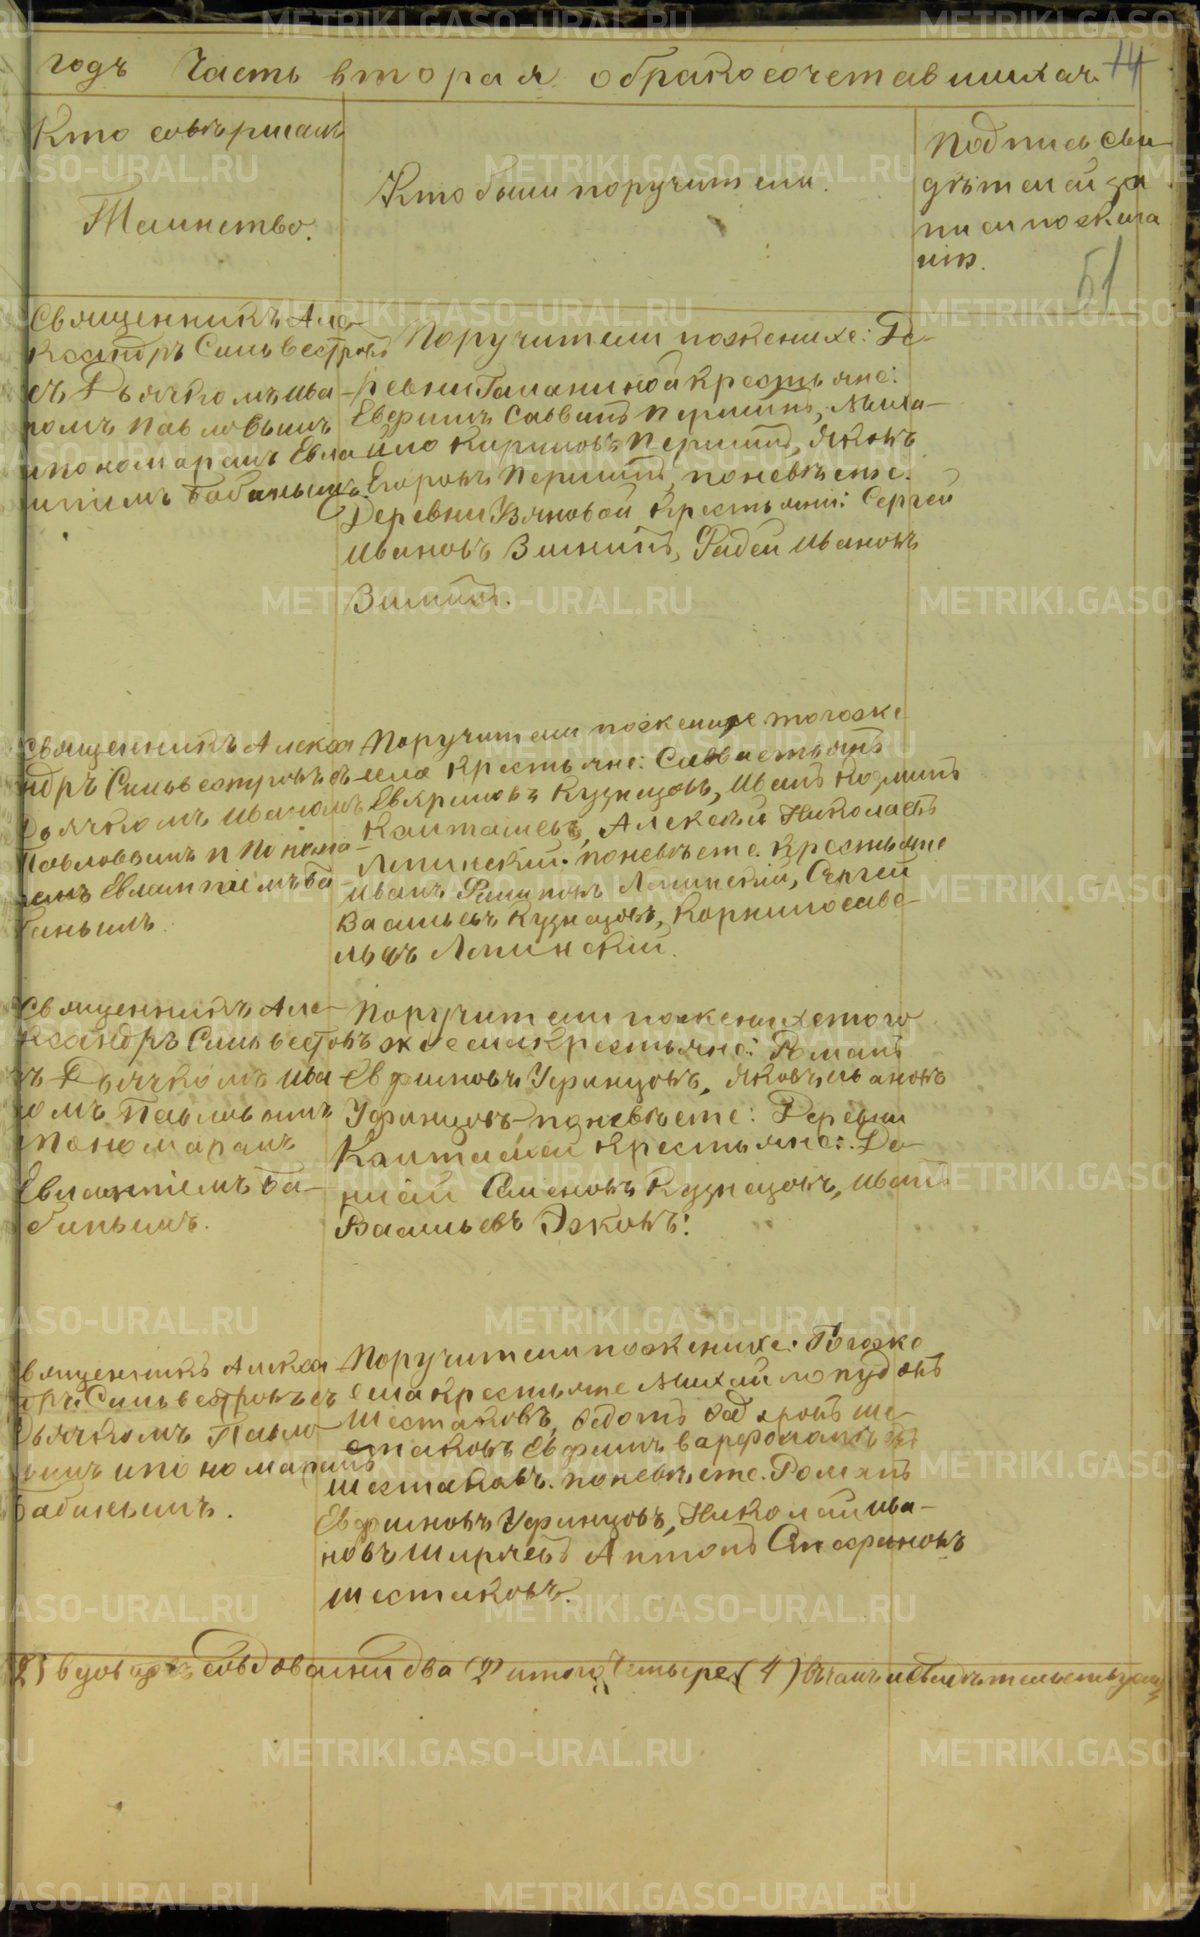 годъ Часть вторая о бракосочетавшихся.
14
Кто совершалъ
Таинство.
Кто были поручители.
Подпись сви
дѣтелей за
писи по жела
нію.
51
Священникъ Але
ксандръ Сильвестровъ
съ Дьячкомъ Ива
номъ Павловымъ
и пономаремъ Евла
мпіемъ Бабинымъ.
Поручители по женихе: Де
ревни Галаниной крестьяне:
Евфимъ Савваинъ Першинъ, Миха
йло Кириловъ Першинъ, Яковъ
Егоровъ Першинъ, по невѣсте.
Деревни крестьяне: Сергей
Ивановъ Фадей Ивановъ
Священникъ Алекса
ндръ Сильвестровъ съ
Дьячкомъ Иваномъ
Павловымъ и Понома
ремъ Евлампіемъ Ба
бинымъ.
Поручители по женихе тогоже
села Крестьяне: Савастьянъ
Кузнецовъ, Иванъ Козминъ
Алексей Николаевъ
Лепинский. по невѣсте. Крестьяне
Иванъ Филиповъ Лепинский, Сергей
Васильевъ Кузнецовъ, Корнило Саве
льевъ Лепинский.
Священникъ Але
ксандръ Сильвестровъ
съ Дьячкомъ Ива
номъ Павловымъ
и пономаремъ
Евлампіемъ Ба
бинымъ.
Поручители по женихе того
же села крестьяне: Романъ
Евфимовъ Уфинцовъ, Яковъ Ивановъ
Уфинцовъ по невѣсте: Деревни
крестьяне: Да
нией Семеновъ Кузнецовъ, Иванъ
Васильевъ Эжовъ:
Священникъ Алекса
ндръ Сильвестровъ съ
Дьячкомъ Павло
вымъ и пономаремъ
Бабинымъ.
Поручители по женихе: Тогоже
села крестьяне Михайло
Шестаковъ, Федотъ Ше
стаковъ Евфимъ Варфоломеевъ
Шестаковъ. по невѣсте. Романъ
Евфимовъ Уфинцовъ, Николай Ива
новъ Ширяевъ Антонъ Стефановъ
Шестаковъ.
два (2) итого Четыре (4)
METRIKI.GASO-URAL.RU